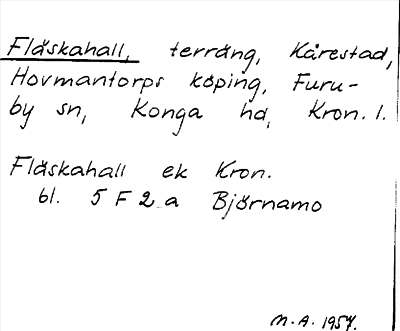 Fläskahall, terräng, Kårestad,
Hovmantorps köping, Furu-
by sn, Konga hd, Kron. l.
Fläskahall ek Kron.
bl. 5 F 2 a Björnamo
M.A. 1957.